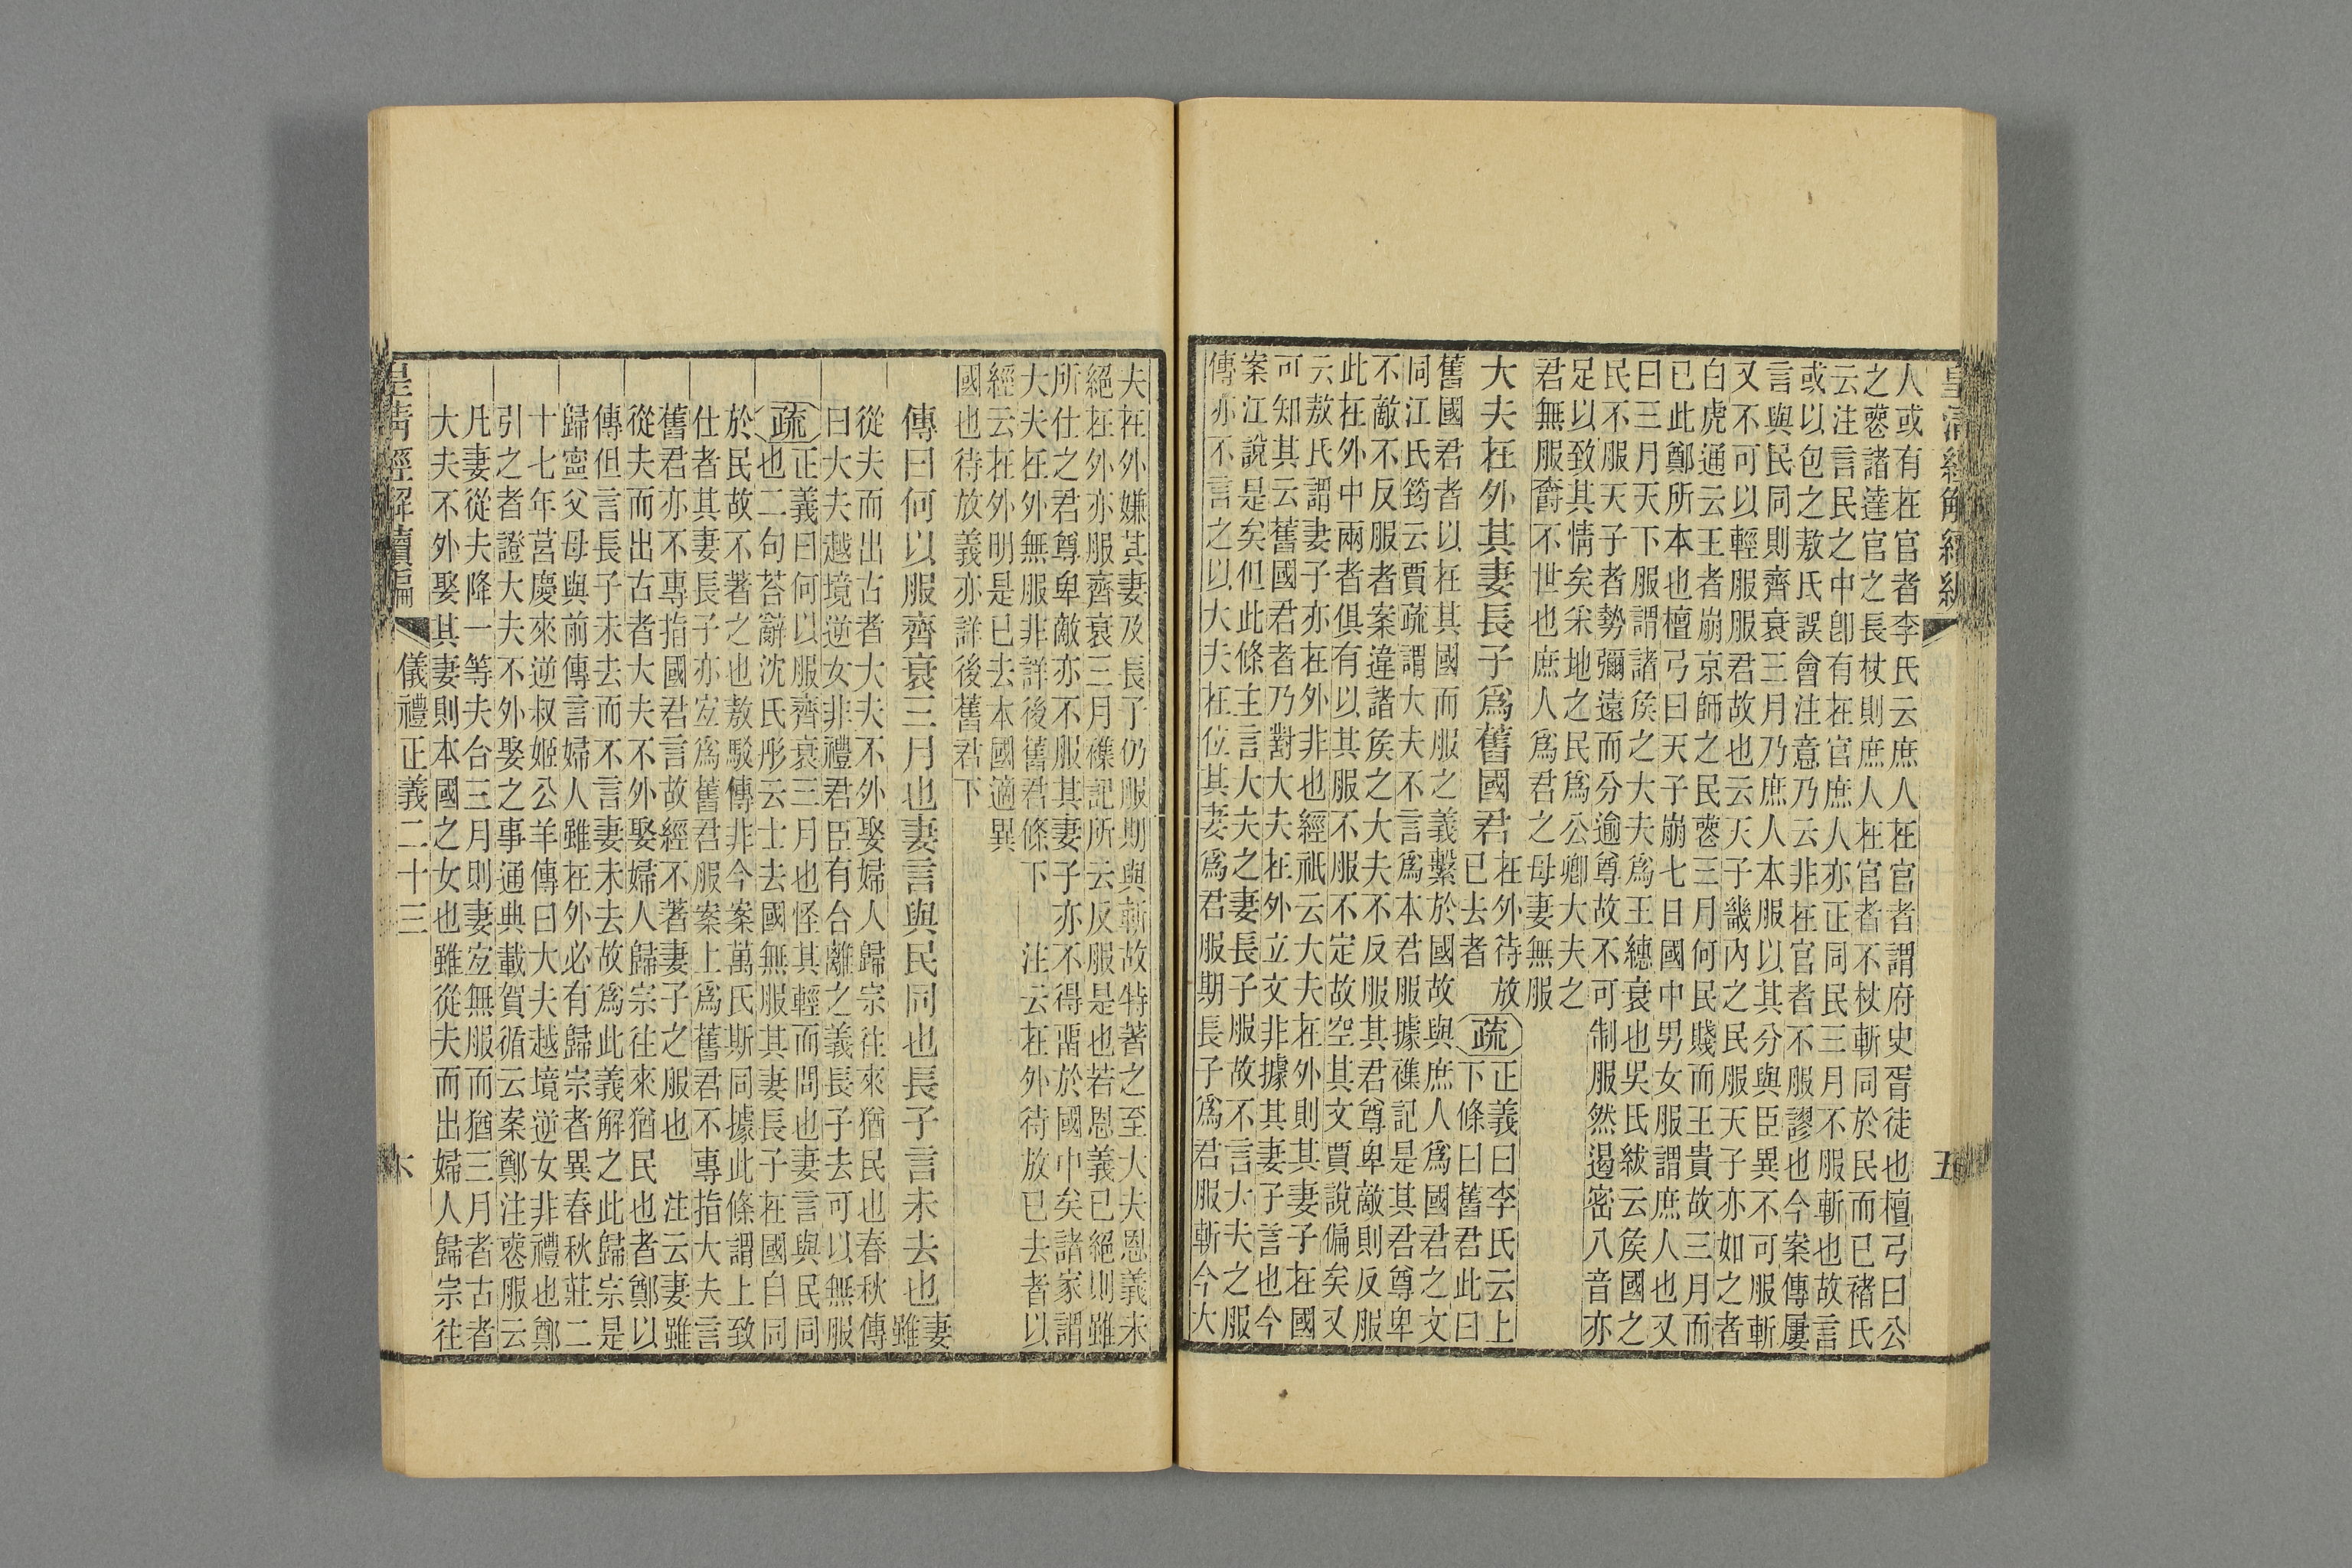 皇清經解續編
五
人或有在官者李氏云庶人在官者謂府史胥徒也檀弓曰公
之喪諸達官之長杖則庶人在官者不杖斬同於民而已褚氏
云注言民之中卽有在官庶人亦正同民三月不服斬也故言
或以包之敖氏誤會注意乃云非在官者不服謬也今案傳屢
言與民同則齊衰三月乃庶人本服以其分與臣異不可服斬
又不可以輕服服君故也云天子畿內之民服天子亦如之者
白虎通云王者崩京師之民喪三月何民賤而王貴故三月而
已此鄭所本也檀弓曰天子崩七日國中男女服謂庶人也又
曰三月天下服謂諸矦之大夫爲王繐衰也吳氏紱云矦國之
民不服天子者勢彌遠而分逾尊故不可制服然遏密八音亦
足以致其情矣采地之民爲公卿大夫之
君無服奝不世也庶人爲君之母妻無服
大夫在外其妻長子爲舊國君
在外待放
已去者
疏
正義曰李氏云上
下條曰舊君此曰
舊國君者以在其國而服之義繫於國故與庶人爲國君之文
同江氏筠云賈疏謂大夫不言爲本君服據襍記是其君尊卑
不敵不反服者案違諸矦之大夫不反服其君尊卑敵則反服
此在外中兩者俱有以其服不服不定故空其文賈說偏矣又
云敖氏謂妻子亦在外非也經祇云大夫在外則其妻子在國
可知其云舊國君者乃對大夫在外立文非據其妻子言也今
案江說是矣但此條主言大夫之妻長子服故不言大夫之服
傳亦不言之以大夫在位其妻爲君服期長子爲君服斬今大
夫在外嫌其妻及長子仍服期與斬故特著之至大夫恩義未
絕在外亦服齊衰三月襍記所云反服是也若恩義已絕則雖
所仕之君尊卑敵亦不服其妻子亦不得畱於國中矣諸家謂
大夫在外無服非詳後舊君條下注云在外待放已去者以
經云在外明是已去本國適異
國也待放義亦詳後舊君下
傳曰何以服齊衰三月也妻言與民同也長子言未去也
妻
雖
從夫而出古者大夫不外娶婦人歸宗往來猶民也春秋傳
曰大夫越境逆女非禮君臣有合離之義長子去可以無服
疏
正義曰何以服齊衰三月也怪其輕而問也妻言與民同
也二句荅辭沈氏彤云士去國無服其妻長子在國自同
於民故不著之也敖駁傳非今案萬氏斯同據此條謂上致
仕者其妻長子亦宐爲舊君服案上爲舊君不專指大夫言
舊君亦不專指國君言故經不著妻子之服也注云妻雖
從夫而出古者大夫不外娶婦人歸宗往來猶民也者鄭以
傳但言長子未去而不言妻未去故爲此義解之此歸宗是
歸寧父母與前傳言婦人雖在外必有歸宗者異春秋莊二
十七年莒慶來逆叔姬公羊傳曰大夫越境逆女非禮也鄭
引之者證大夫不外娶之事通典載賀循云案鄭注喪服云
凡妻從夫降一等夫合三月則妻宐無服而猶三月者古者
大夫不外娶其妻則本國之女也雖從夫而出婦人歸宗往
皇清經解續編
儀禮正義二十三